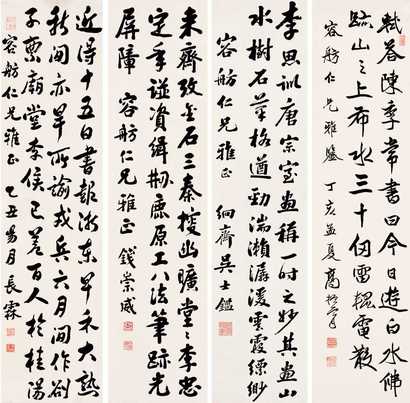 軾答陳季常書曰今日遊白水佛
跡山山上布水三十仞雷輥電散
容舫仁兄雅鑒 丁亥孟夏 高振霄
李思訓唐宗室畫稱一時之妙其畫山
水樹石筆格遒勁湍瀨潺湲雲霞縹緲
容舫仁兄雅正 絅齋吳士鑑
來齋攷金石三秦搜幽曠堂堂李忠
定手迹資緝栞鹿原工八法筆跡光
屏障 容舫仁兄雅正 錢崇威
近得十五日書報浙東早禾大熟
秋間亦旱所諭戎兵六月間作劄
子稟廟堂李侯已差百人於桂陽
容舫仁兄雅正 乙丑昜月 長霖